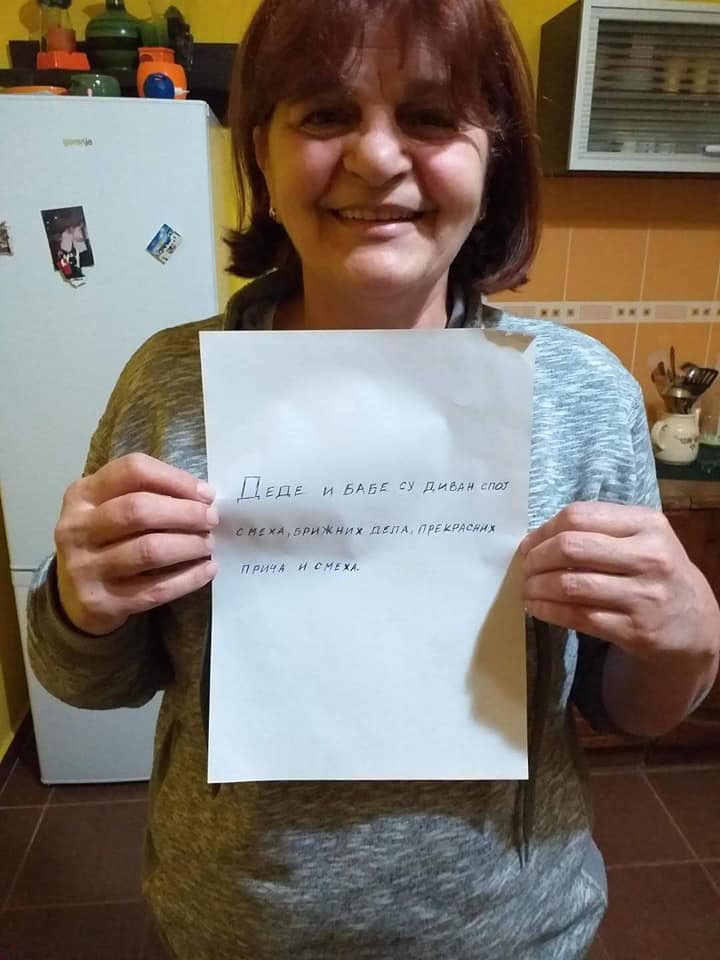 gorenje
ДЕДЕ И БАБЕ СУ ДИВАН СПОЈ
СМЕХА, БРИЖНИХ ДЕЛА, ПРЕКРАСНИХ
ПРИЧА И СМЕХА.